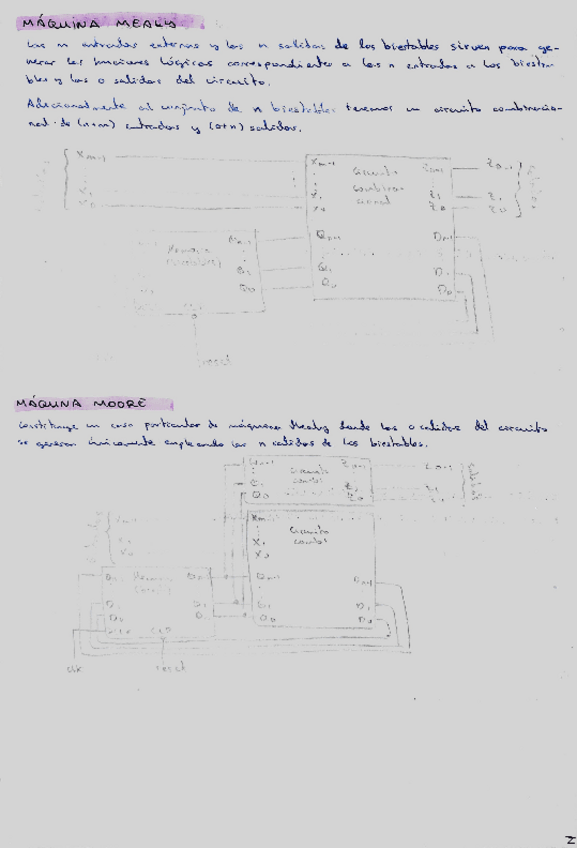 MÁQUINA MEALY
Las m entradas externas y las n salidas de los biestables sirven para ge-
nerar las funciones lógicas correspondiente a las n entradas a los biesta-
bles y las o salidas del circuito.
Adicionalmente al conjunto de n biestables tenemos un circuito combinacio-
nal de (n+m) entradas y (o+n) salidas.
Xm-1 Xm-1 Circuito Zo-1 Zo-1
X1 X1 combina- Z1 Z1
X0 X0 cional Z0 Z0
Memoria Qn-1 Dn-1
(biestables) Q1 Q1 D1
Q0 D0
reset
MÁQUINA MOORE
Constituye un caso particular de máquina Mealy donde las o salidas del circuito
se generan únicamente empleando las n salidas de los biestables.
Qn-1 Circuito Zo-1 Zo-1 Salidas
Q1 comb. Z1 Z1
Q0 Z0
Xm-1 Xm-1 Circuito
X1 X1 comb.
X0 X0
Dn-1 Memoria Qn-1 Qn-1 Dn-1
D1 Q1 Q1 D1
D0 Q0 D0
clk reset
2